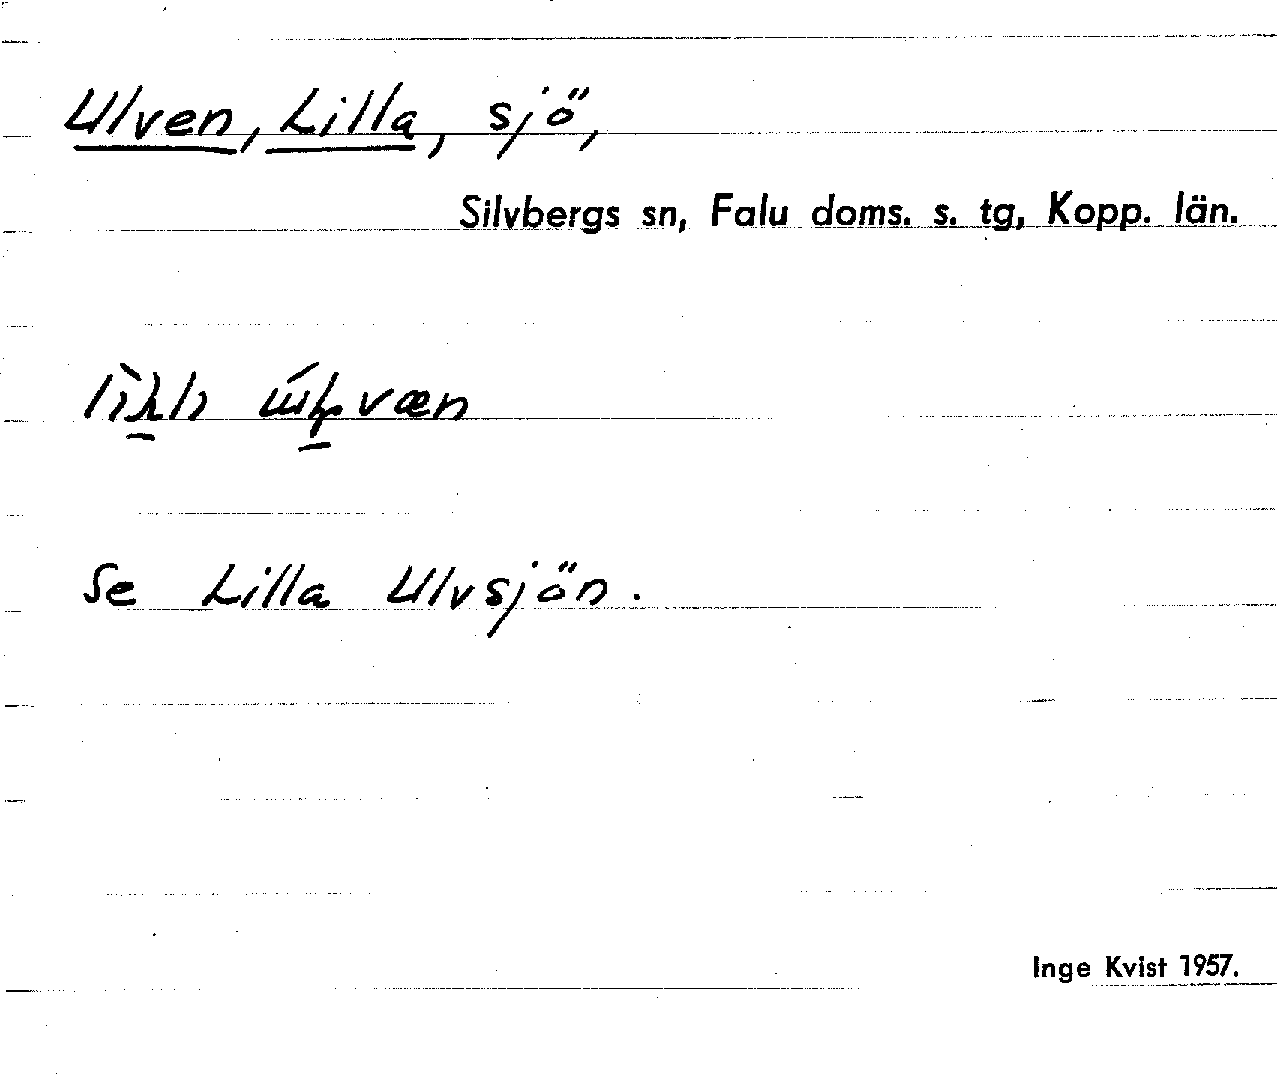 Ulven, Lilla, sjö,
Silvbergs sn, Falu doms. s. tg, Kopp. län.
væn
Se Lilla Ulvsjön.
Inge Kvist 1957.